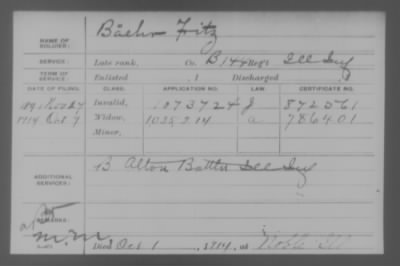 NAME OF SOLDIER: Baehr Fritz
SERVICE: Late rank, Co. B 144 Reg't Ill Inf
TERM OF SERVICE: Enlisted , 1 Discharged
DATE OF FILING. CLASS. APPLICATION NO. LAW. CERTIFICATE NO.
1891 Nov 27 Invalid, 1073724 J 872561
1914 Oct 9 Widow, a 786401
Minor,
ADDITIONAL SERVICES: B Alton Battln Ill Inf
REMARKS:
m.m. Died Oct 1, 1914, at Noble Ill